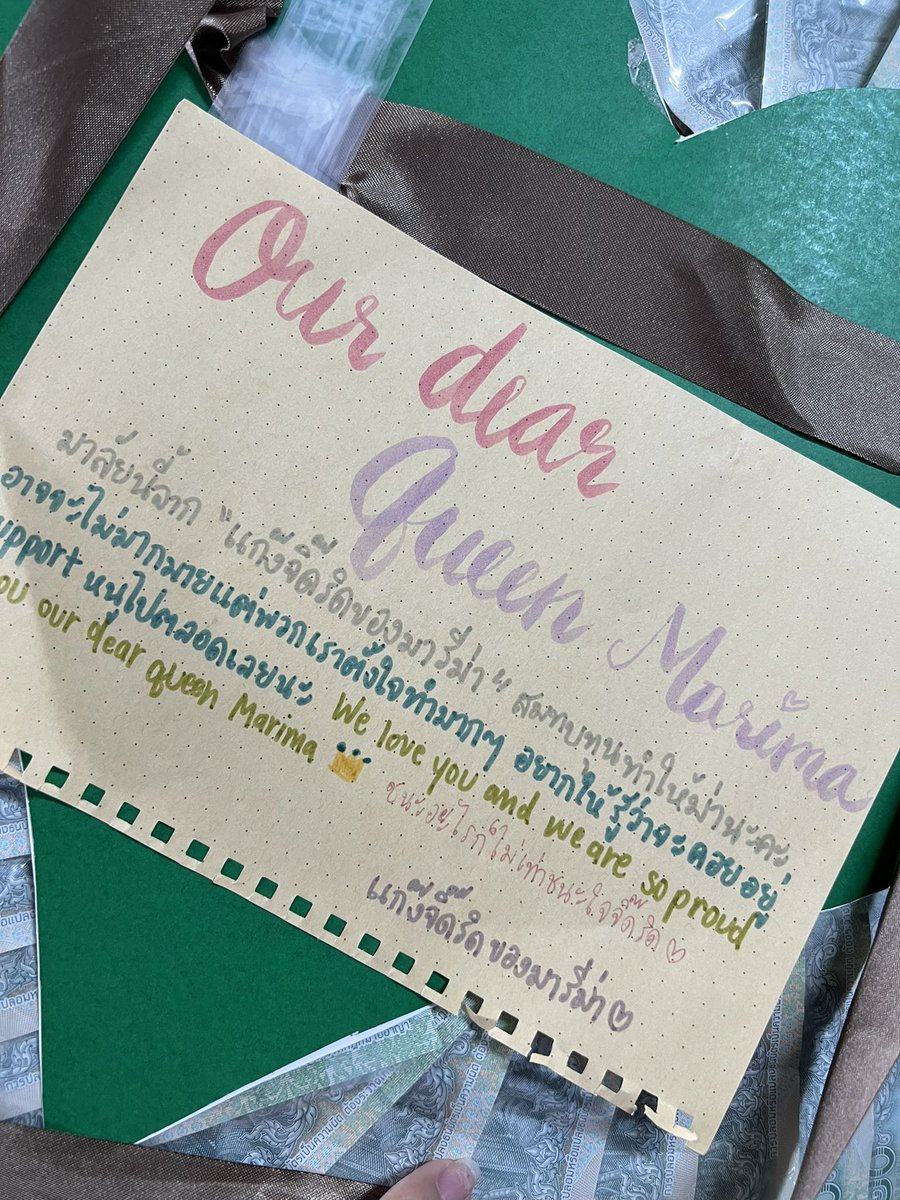 Our dear
Queen Marima
มาลัยนี้จาก "แก๊งจี๊ดรีดของมารีม่า" สมทบทุนทำให้ม่านะคะ
อาจจะไม่มากมายแต่พวกเราตั้งใจทำมากๆ อยากให้รู้ว่าจะคอยอยู่
support หนูไปตลอดเลยนะ We love you and we are so proud
you our dear queen Marima
ชนะอะไรก็ไม่เท่าชนะใจจี๊ดรีด
แก๊งจี๊ดรีด ของมารีม่า